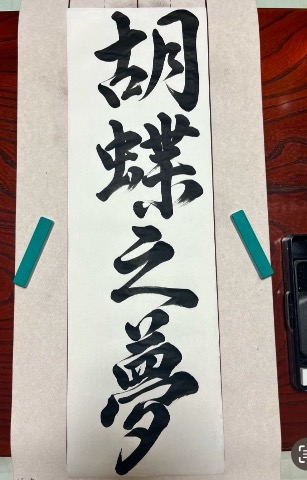 胡蝶之夢